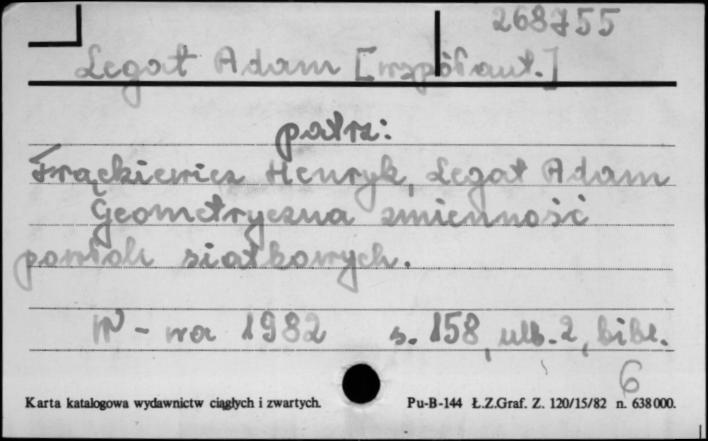 268755
Legat Adam [współaut.]
patrz:
Frąckiewicz Henryk, Legat Adam
Geometryczna zmienność
powłok siatkowych.
W-wa 1982 s. 158, ulb. 2, bibl.
6
Karta katalogowa wydawnictw ciągłych i zwartych. Pu-B-144 Ł.Z.Graf. Z. 120/15/82 n. 638000.